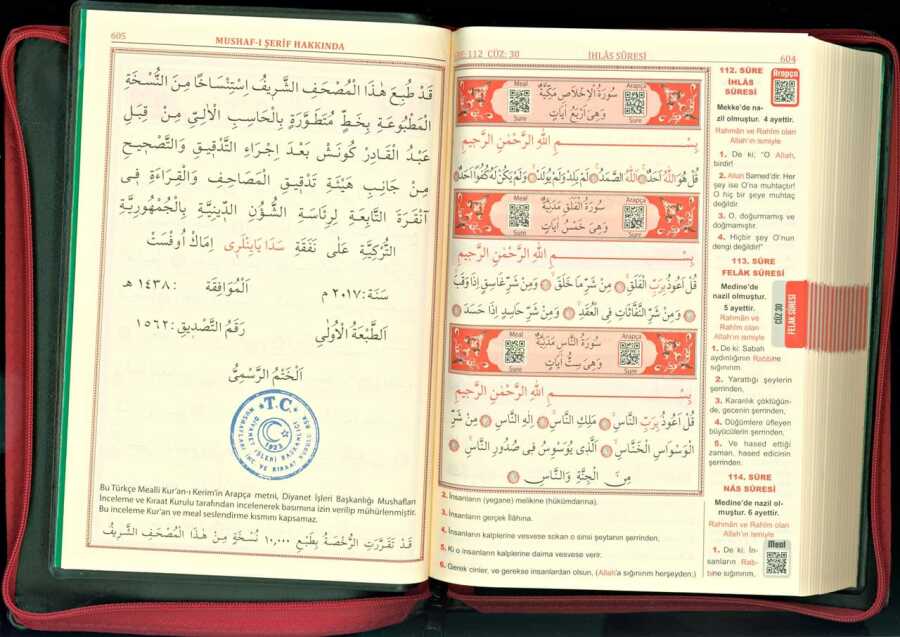 605
MUSHAF-I ŞERİF HAKKINDA
قَدْ طُبِعَ هٰذَا الْمُصْحَفِ الشَّرِيفُ اِسْتِنْسَاخًا مِنَ النُّسْخَةِ
الْمَطْبُوعَةِ بِخَطٍّ مُتَطَوَّرَةٍ بِالْحَاسِبِ الْاٰلِيّ مِنْ قِبَلِ
عَبْدُ الْقَادِرْ كُونَشْ بَعْدَ اِجْرَاءِ التَّدْقِيقِ وَالتَّصْحِيحِ
مِنْ جَانِبِ هَيْئَةِ تَدْقِيقِ الْمَصَاحِفِ وَالْقِرَاءَةِ فِى
آنْقَرَةَ التَّابِعَةِ لِرِئَاسَةِ الشُّؤُنِ الدِّينِيَّةِ بِالْجُمْهُورِيَّةِ
التُّرْكِيَّةِ عَلٰى نَفَقَةِ سَدَا يَايِنْلَرِى اِمَاكْ اُوفْسَتْ
سَنَة: ٢٠١٧ م اَلْمُوَافِقَة : ١٤٣٨ هـ
اَلطَّبْعَةُ الْاُولٰى رَقَمُ التَّصْدِيقِ: ١٥٦٢
اَلْخَتْمُ الرَّسْمِىُّ
T.C.
1923
Bu Türkçe Mealli Kur'an-ı Kerim'in Arapça metni, Diyanet İşleri Başkanlığı Mushafları
İnceleme ve Kıraat Kurulu tarafından incelenerek basımına izin verilip mühürlenmiştir.
Bu inceleme Kur'an ve meal seslendirme kısmını kapsamaz.
قَدْ تَقَرَّرَتِ الرُّخْصَةُ بِطَبْعِ ١٠,٠٠٠ نُسْخَةٍ مِنْ هٰذَا الْمُصْحَفِ الشَّرِيفِ
112 CÜZ: 30
İHLÂS SÛRESİ
604
Meal
Sure
سُورَةُ الْاِخْلَاصِ مَكِّيَّةٌ
وَهِىَ اَرْبَعُ اٰيَاتٍ
Arapça
Sure
بِسْمِ اللّٰهِ الرَّحْمٰنِ الرَّحِيمِ
قُلْ هُوَ اللّٰهُ اَحَدٌ ۝ اَللّٰهُ الصَّمَدُ ۝ لَمْ يَلِدْ وَلَمْ يُولَدْ ۝ وَلَمْ يَكُنْ لَهُ كُفُوًا اَحَدٌ ۝
Meal
Sure
سُورَةُ الْفَلَقِ مَدَنِيَّةٌ
وَهِىَ خَمْسُ اٰيَاتٍ
Arapça
Sure
بِسْمِ اللّٰهِ الرَّحْمٰنِ الرَّحِيمِ
قُلْ اَعُوذُ بِرَبِّ الْفَلَقِ ۝ مِنْ شَرِّ مَا خَلَقَ ۝ وَمِنْ شَرِّ غَاسِقٍ اِذَا وَقَبَ
۝ وَمِنْ شَرِّ النَّفَّاثَاتِ فِى الْعُقَدِ ۝ وَمِنْ شَرِّ حَاسِدٍ اِذَا حَسَدَ ۝
Meal
Sure
سُورَةُ النَّاسِ مَدَنِيَّةٌ
وَهِىَ سِتُّ اٰيَاتٍ
Arapça
Sure
بِسْمِ اللّٰهِ الرَّحْمٰنِ الرَّحِيمِ
قُلْ اَعُوذُ بِرَبِّ النَّاسِ ۝ مَلِكِ النَّاسِ ۝ اِلٰهِ النَّاسِ ۝ مِنْ شَرِّ
الْوَسْوَاسِ الْخَنَّاسِ ۝ اَلَّذِى يُوَسْوِسُ فِى صُدُورِ النَّاسِ ۝
مِنَ الْجِنَّةِ وَالنَّاسِ ۝
2. İnsanların (yegane) melikine (hükümdarına).
3. İnsanların gerçek İlâhına.
4. İnsanların kalplerine vesvese sokan o sinsi şeytanın şerrinden,
5. Ki o insanların kalplerine daima vesvese verir.
6. Gerek cinler, ve gerekse insanlardan olsun, (Allah'a sığınırım herşeyden;)
112. SÛRE
İHLÂS
SÛRESİ
Arapça
Mekke'de na-
zil olmuştur. 4 ayettir.
Rahmân ve Rahîm olan
Allah'ın ismiyle
1. De ki; "O Allah,
birdir!
2. Allah Samed'dir. Her
şey ise O'na muhtaçtır!
O hiç bir şeye muhtaç
değildir.
3. O, doğurmamış ve
doğmamıştır.
4. Hiçbir şey O'nun
dengi değildir!"
113. SÛRE
FELÂK SÛRESİ
Medine'de
nazil olmuştur.
5 ayettir.
Rahmân ve
Rahîm olan
Allah'ın ismiyle
CÜZ 30
FELAK SÛRESİ
1. De ki: Sabah
aydınlığının Rabbine
sığınırım.
2. Yarattığı şeylerin
şerrinden,
3. Karanlık çöktüğün-
de, gecenin şerrinden,
4. Düğümlere üfleyen
büyücülerin şerrinden,
5. Ve hased ettiği
zaman, hased edicinin
şerrinden.
114. SÛRE
NÂS SÛRESİ
Medine'de nazil ol-
muştur. 6 ayettir.
Rahmân ve Rahîm olan
Allah'ın ismiyle
Meal
1. De ki: İn-
sanların Rab-
bine sığınırım,